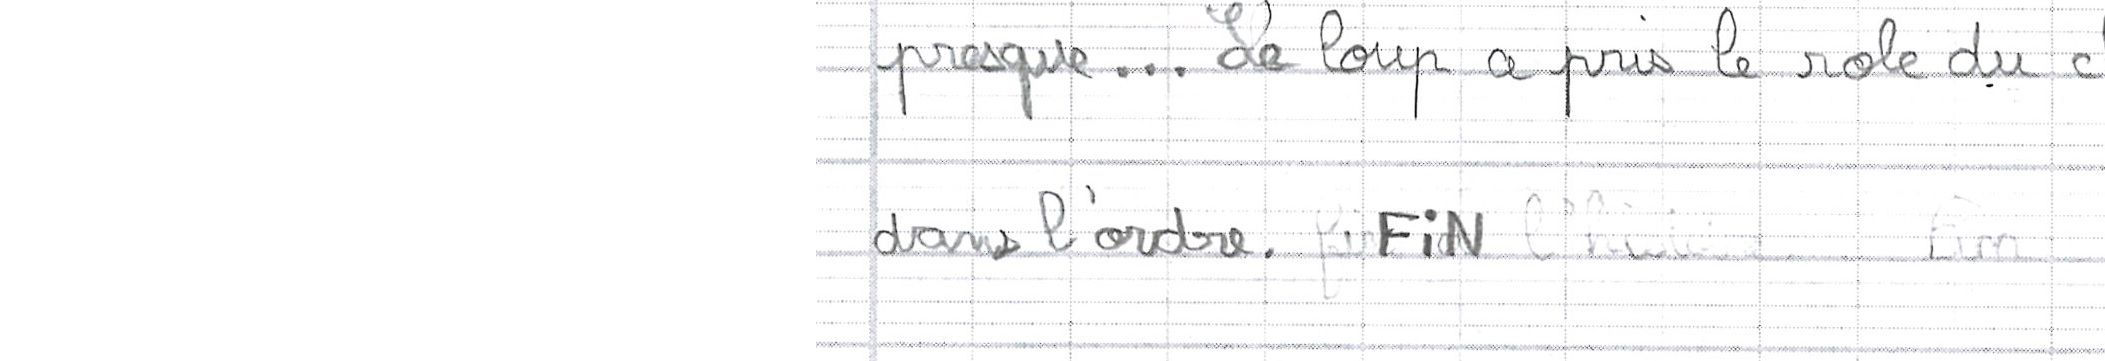 presque... Le loup a pris le role du
dans l'ordre. FiN